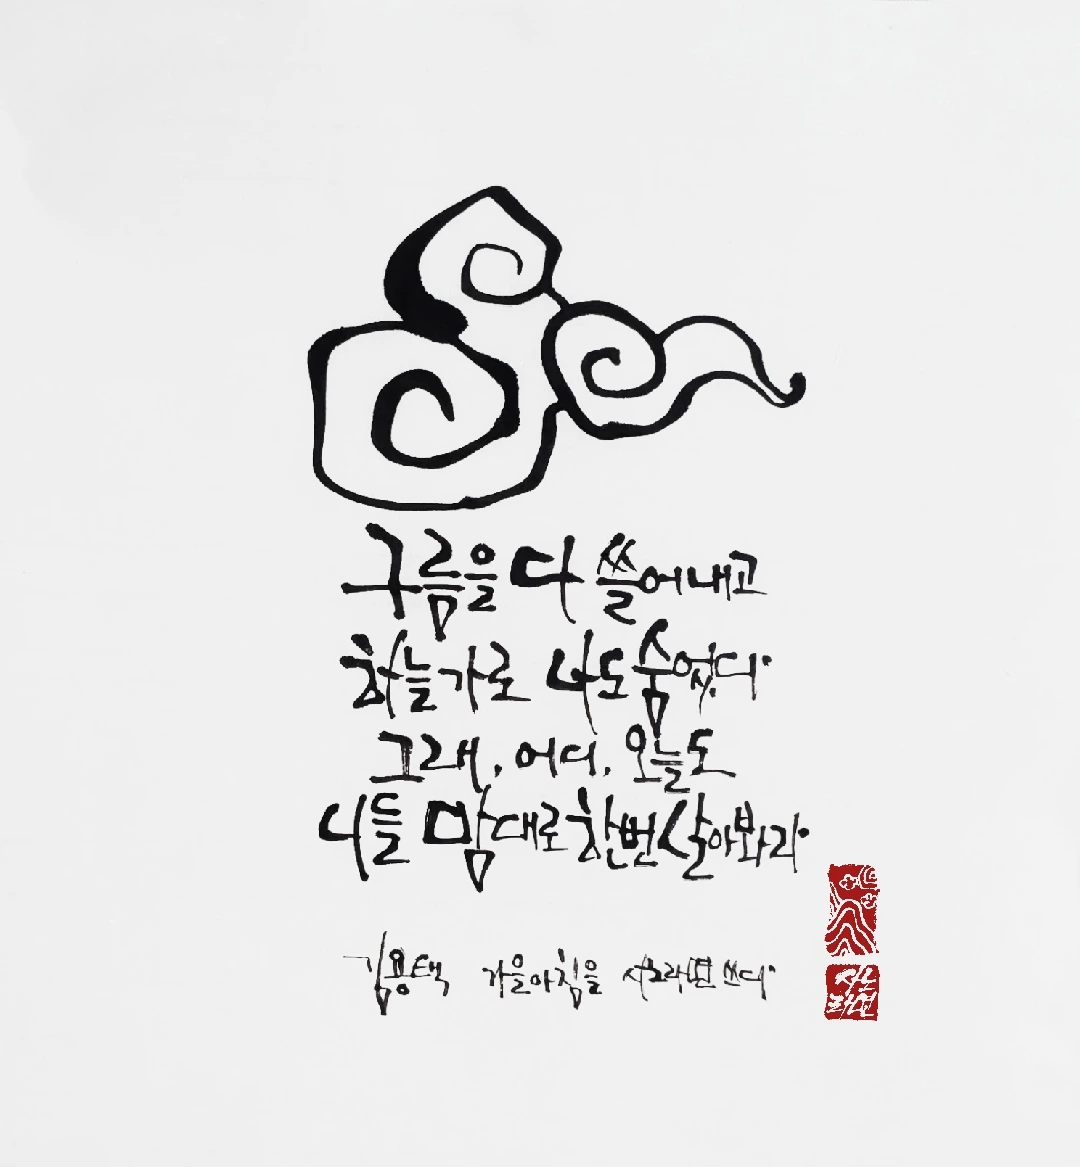 구름을 다 쓸어내고
하늘가로 나도 숨었다.
그래, 어디, 오늘도
니들 맘대로 한번 살아봐라.
김용택 가을아침을 쓰다.